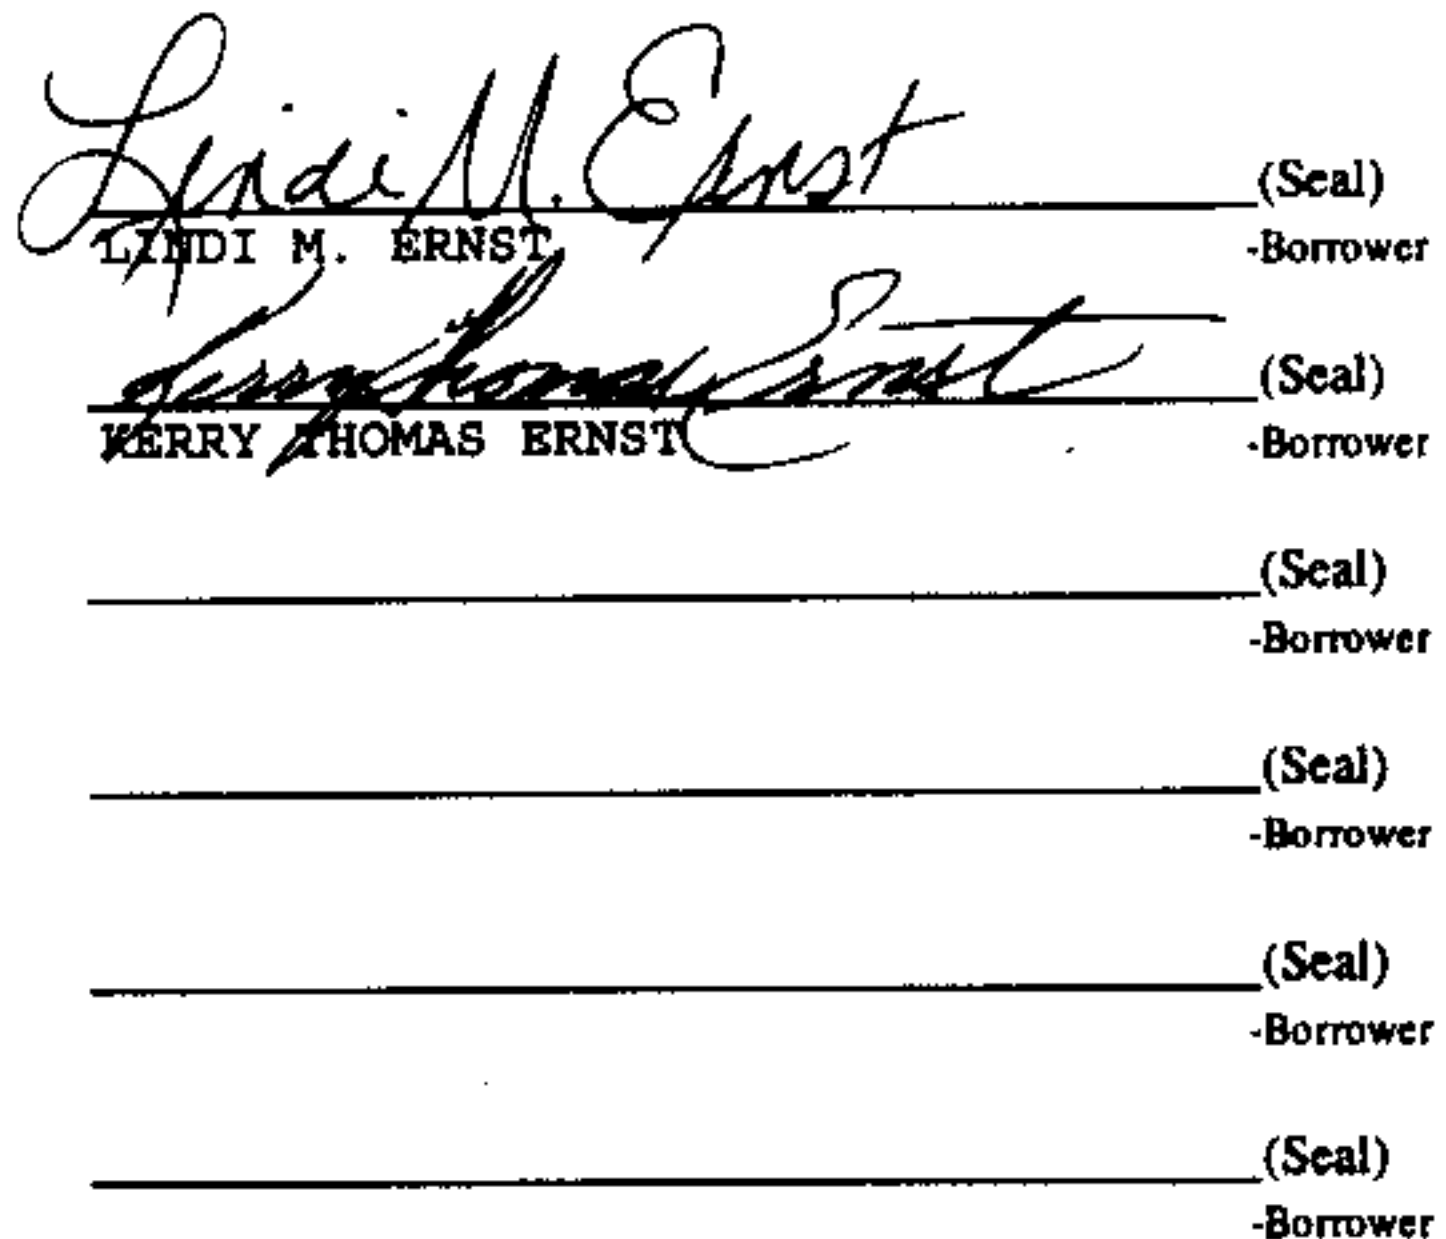 Lindi M. Ernst (Seal)
LINDI M. ERNST -Borrower
Kerry Thomas Ernst (Seal)
KERRY THOMAS ERNST -Borrower
(Seal)
-Borrower
(Seal)
-Borrower
(Seal)
-Borrower
(Seal)
-Borrower